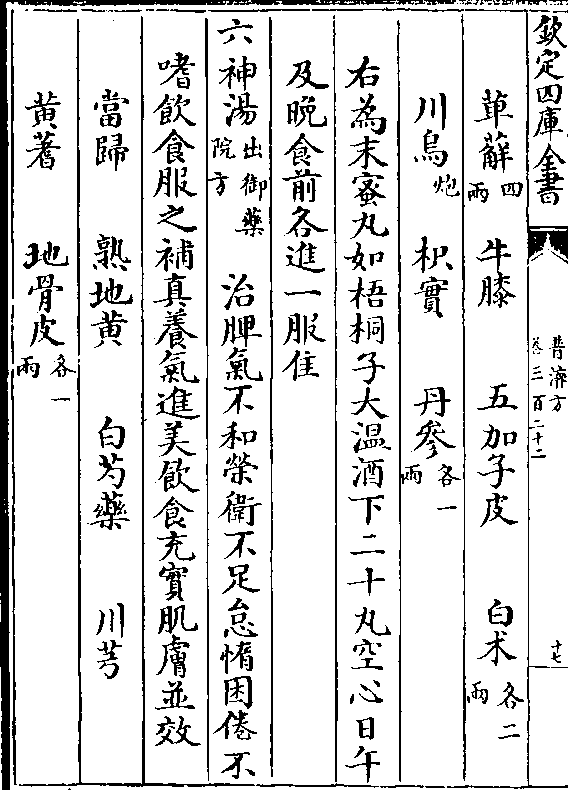 欽定四庫全書
普濟方
卷三百二十二
十七
萆薢四兩 牛膝 五加子皮 白朮各二兩
川烏炮 枳實 丹參各一兩
右為末蜜丸如梧桐子大温酒下二十丸空心日午
及晩食前各進一服佳
六神湯出御藥院方 治脾氣不和榮衛不足怠惰困倦不
嗜飲食服之補真養氣進美飲食充實肌膚並效
當歸 熟地黄 白芍藥 川芎
黄蓍 地骨皮各一兩